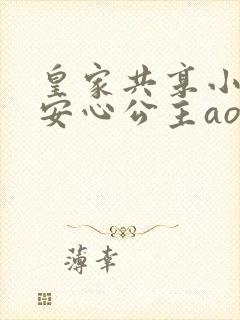 皇家共享小
安心公主ao
薄幸